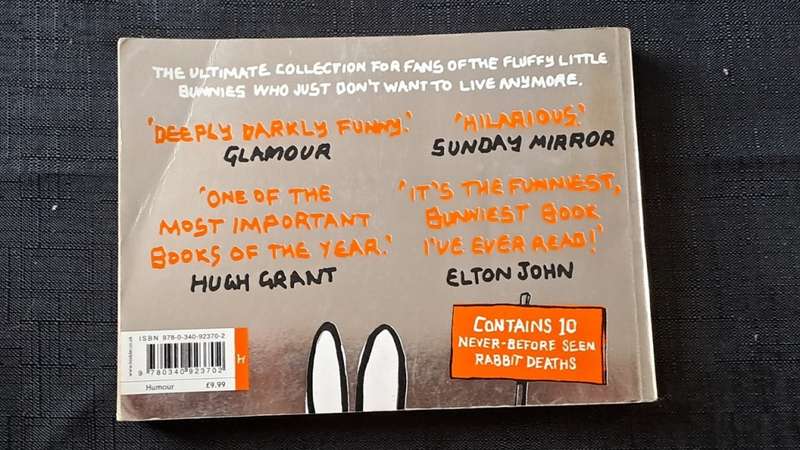 THE ULTIMATE COLLECTION FOR FANS OF THE FLUFFY LITTLE
BUNNIES WHO JUST DON'T WANT TO LIVE ANYMORE.
'DEEPLY DARKLY FUNNY.'
GLAMOUR
'HILARIOUS.'
SUNDAY MIRROR
'ONE OF THE
MOST IMPORTANT
BOOKS OF THE YEAR.'
HUGH GRANT
'IT'S THE FUNNIEST,
BUNNIEST BOOK
I'VE EVER READ!'
ELTON JOHN
CONTAINS 10
NEVER-BEFORE SEEN
RABBIT DEATHS
ISBN 978-0-340-92370-2
9 780340 923702
Humour £9.99
www.hodder.co.uk
H